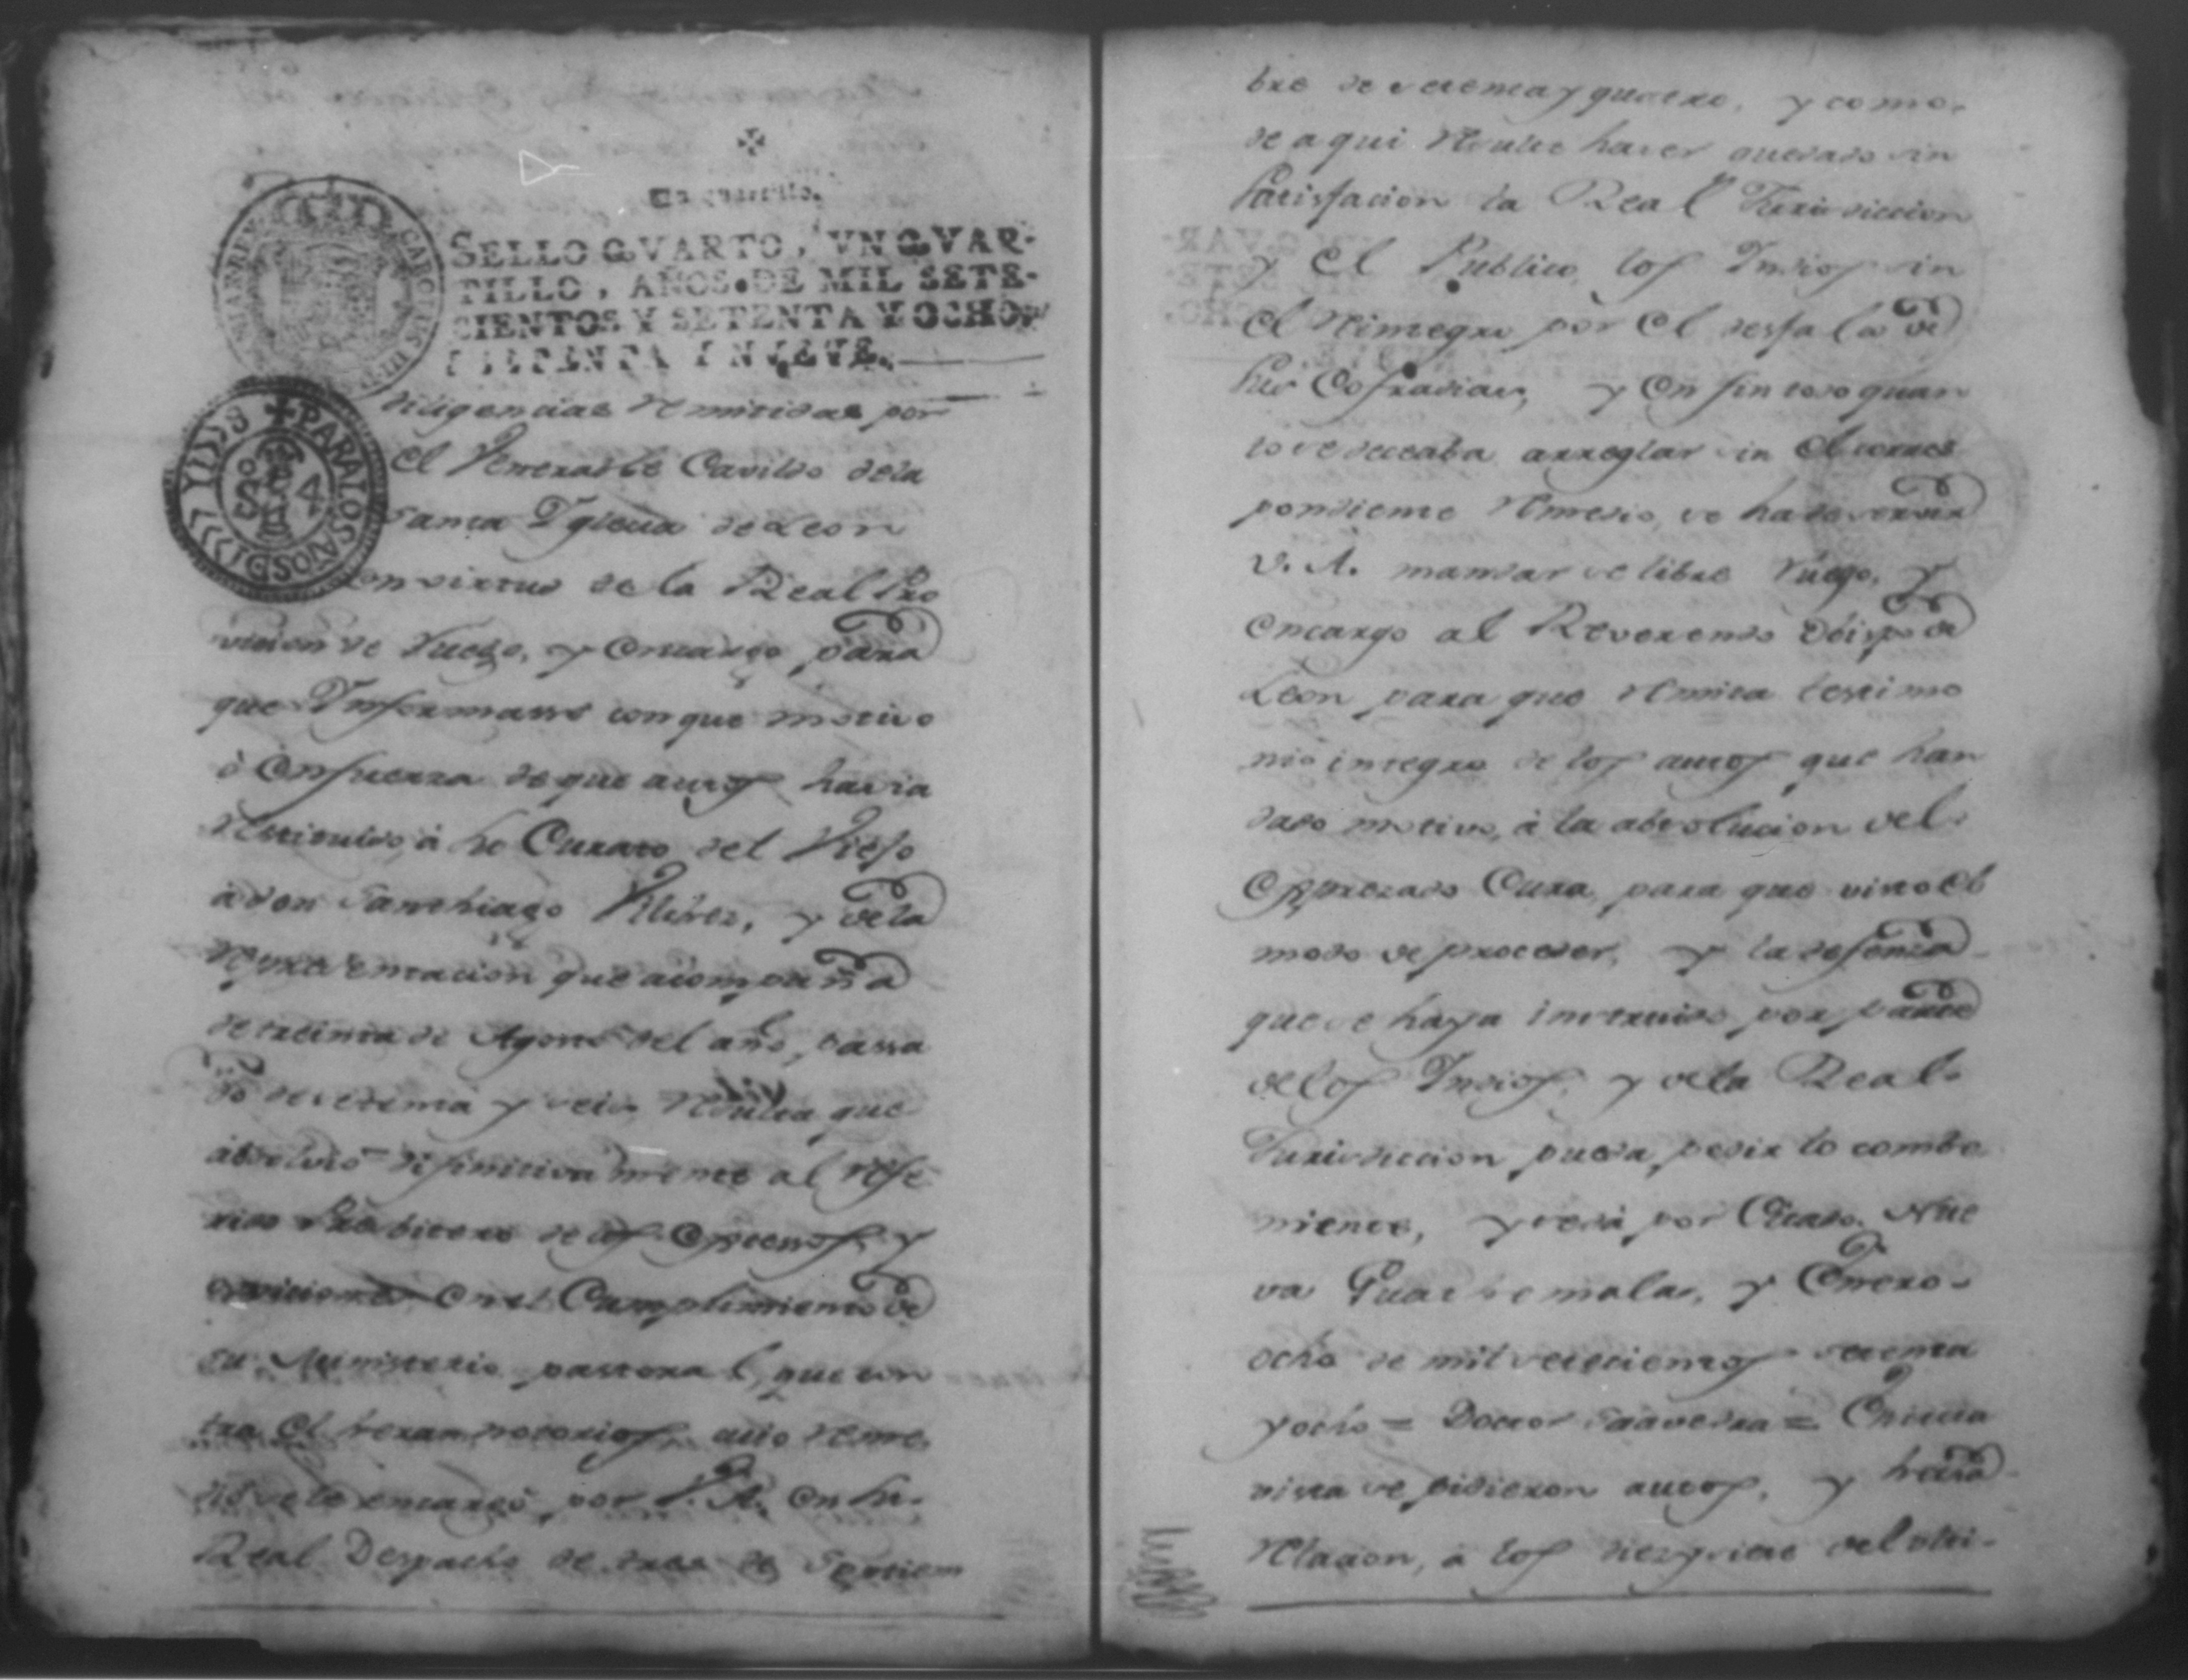 Un quartillo.
SELLO QVARTO, VN QVAR-
TILLO, AÑOS DE MIL SETE-
CIENTOS Y SETENTA Y OCHO, Y
SETENTA Y NUEVE.
CAROLUS III
PARA LOS AÑOS D
diligencias remitidas por
el Venerable Cavildo dela
Santa Yglecia de Leon
en virtud de la Real Pro
vicion de Ruego, y encargo para
que Informasse con que motivo
ò en fuerza de que autos havia
restituido, à su Curato del Viejo
à don Santhiago Vilchez, y dela
representacion que acompaña
de treinta de Agosto del año, passa
do de setenta y seis, resulta que
absolvio difinitiva mente al refe
rido Presbitero de los excessos, y
en el Cumplimiento de
su Ministerio pastoral, que con
tra el heran notorios, cuio reme
dio se le encargò por V. A. en su
Real Despacho de doce de Septiem
bre de setenta y quatro, y como
de aqui resulte haver quedado sin
satisfacion la Real Jurisdiccion
y el Publico, los Indios sin
el reintegro por el desfalco de
sus Cofradias, y en fin todo quan
to se deceaba arreglar sin el corres
pondiente remedio, se ha de servir
V. A. mandar se libre Ruego, y
encargo al Reverendo Obispo de
Leon para que remita testimo
nio integro de los autos que han
dado motivo, à la absolucion del
expresado Cura, para que visto el
modo de proceder, y la defensa
que se haya instruido por parte
delos Indios, y dela Real
Jurisdiccion pueda pedir lo combe
niente, y será por Citado. Nue
va Guathemala, y Enero
ocho de mil setecientos setenta
y ocho = Doctor Saavedra = En cuia
vista se pidieron autos, y hecha
relacion, à los diez y siete del ulti-